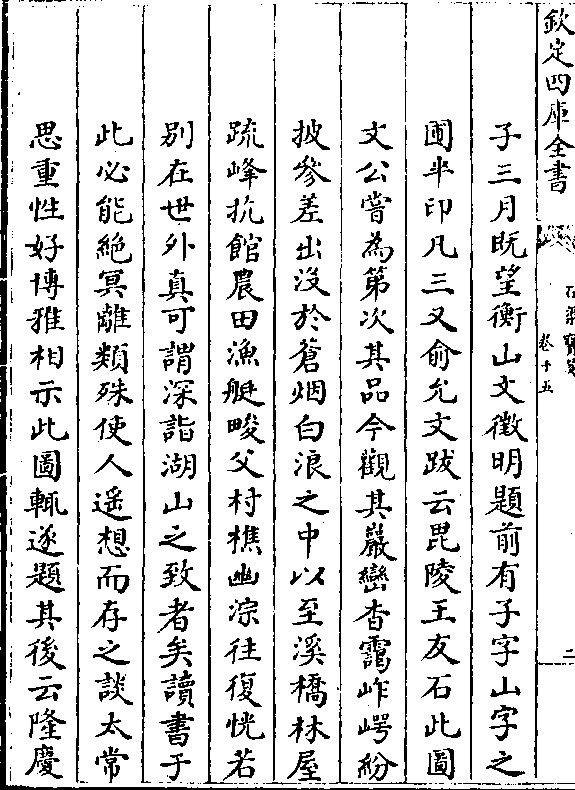 欽定四庫全書
石渠寶笈
卷十五
二
子三月既望衡山文徵明題前有子字山字之
圃半印凡三又俞允文跋云毘陵王友石此圖
文公嘗為第次其品今觀其巖巒杳靄岝崿紛
披參差出没於蒼烟白浪之中以至溪橋林屋
疏峰抗館農田漁艇畯父村樵幽淙往復恍若
别在世外真可謂深詣湖山之致者矣讀書于
此必能絶冥離類殊使人遥想而存之談太常
思重性好博雅相示此圖輒遂題其後云隆慶